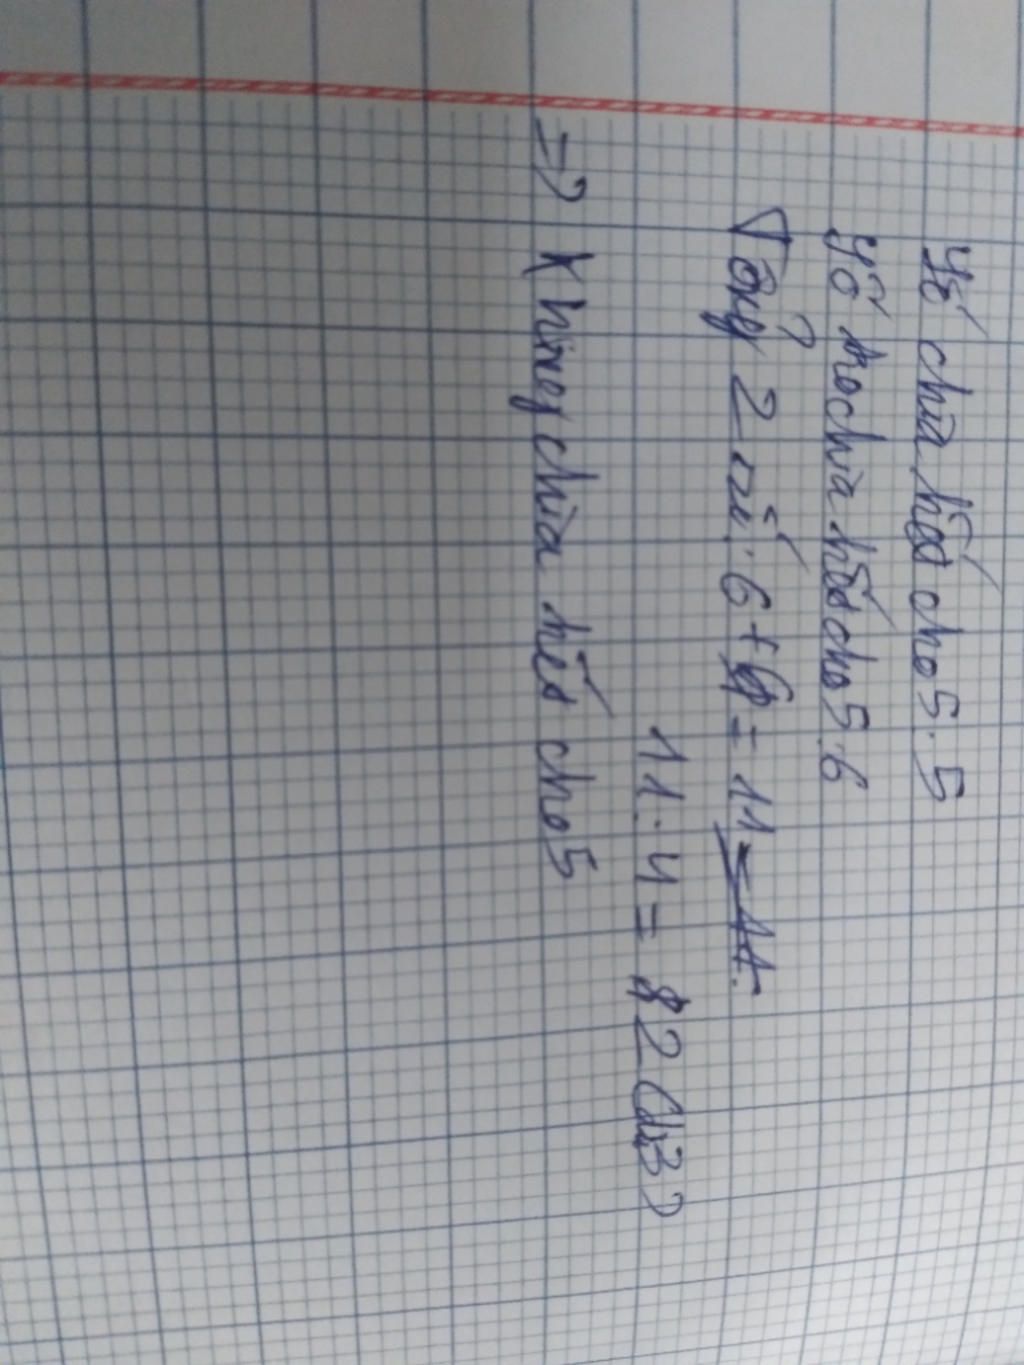 Số chia hết cho 5: 5
Số ko chia hết cho 5: 6
Tổng 2 số: 6+ = 11
11:4 = 2 (dư3)
=> Không chia hết cho 5